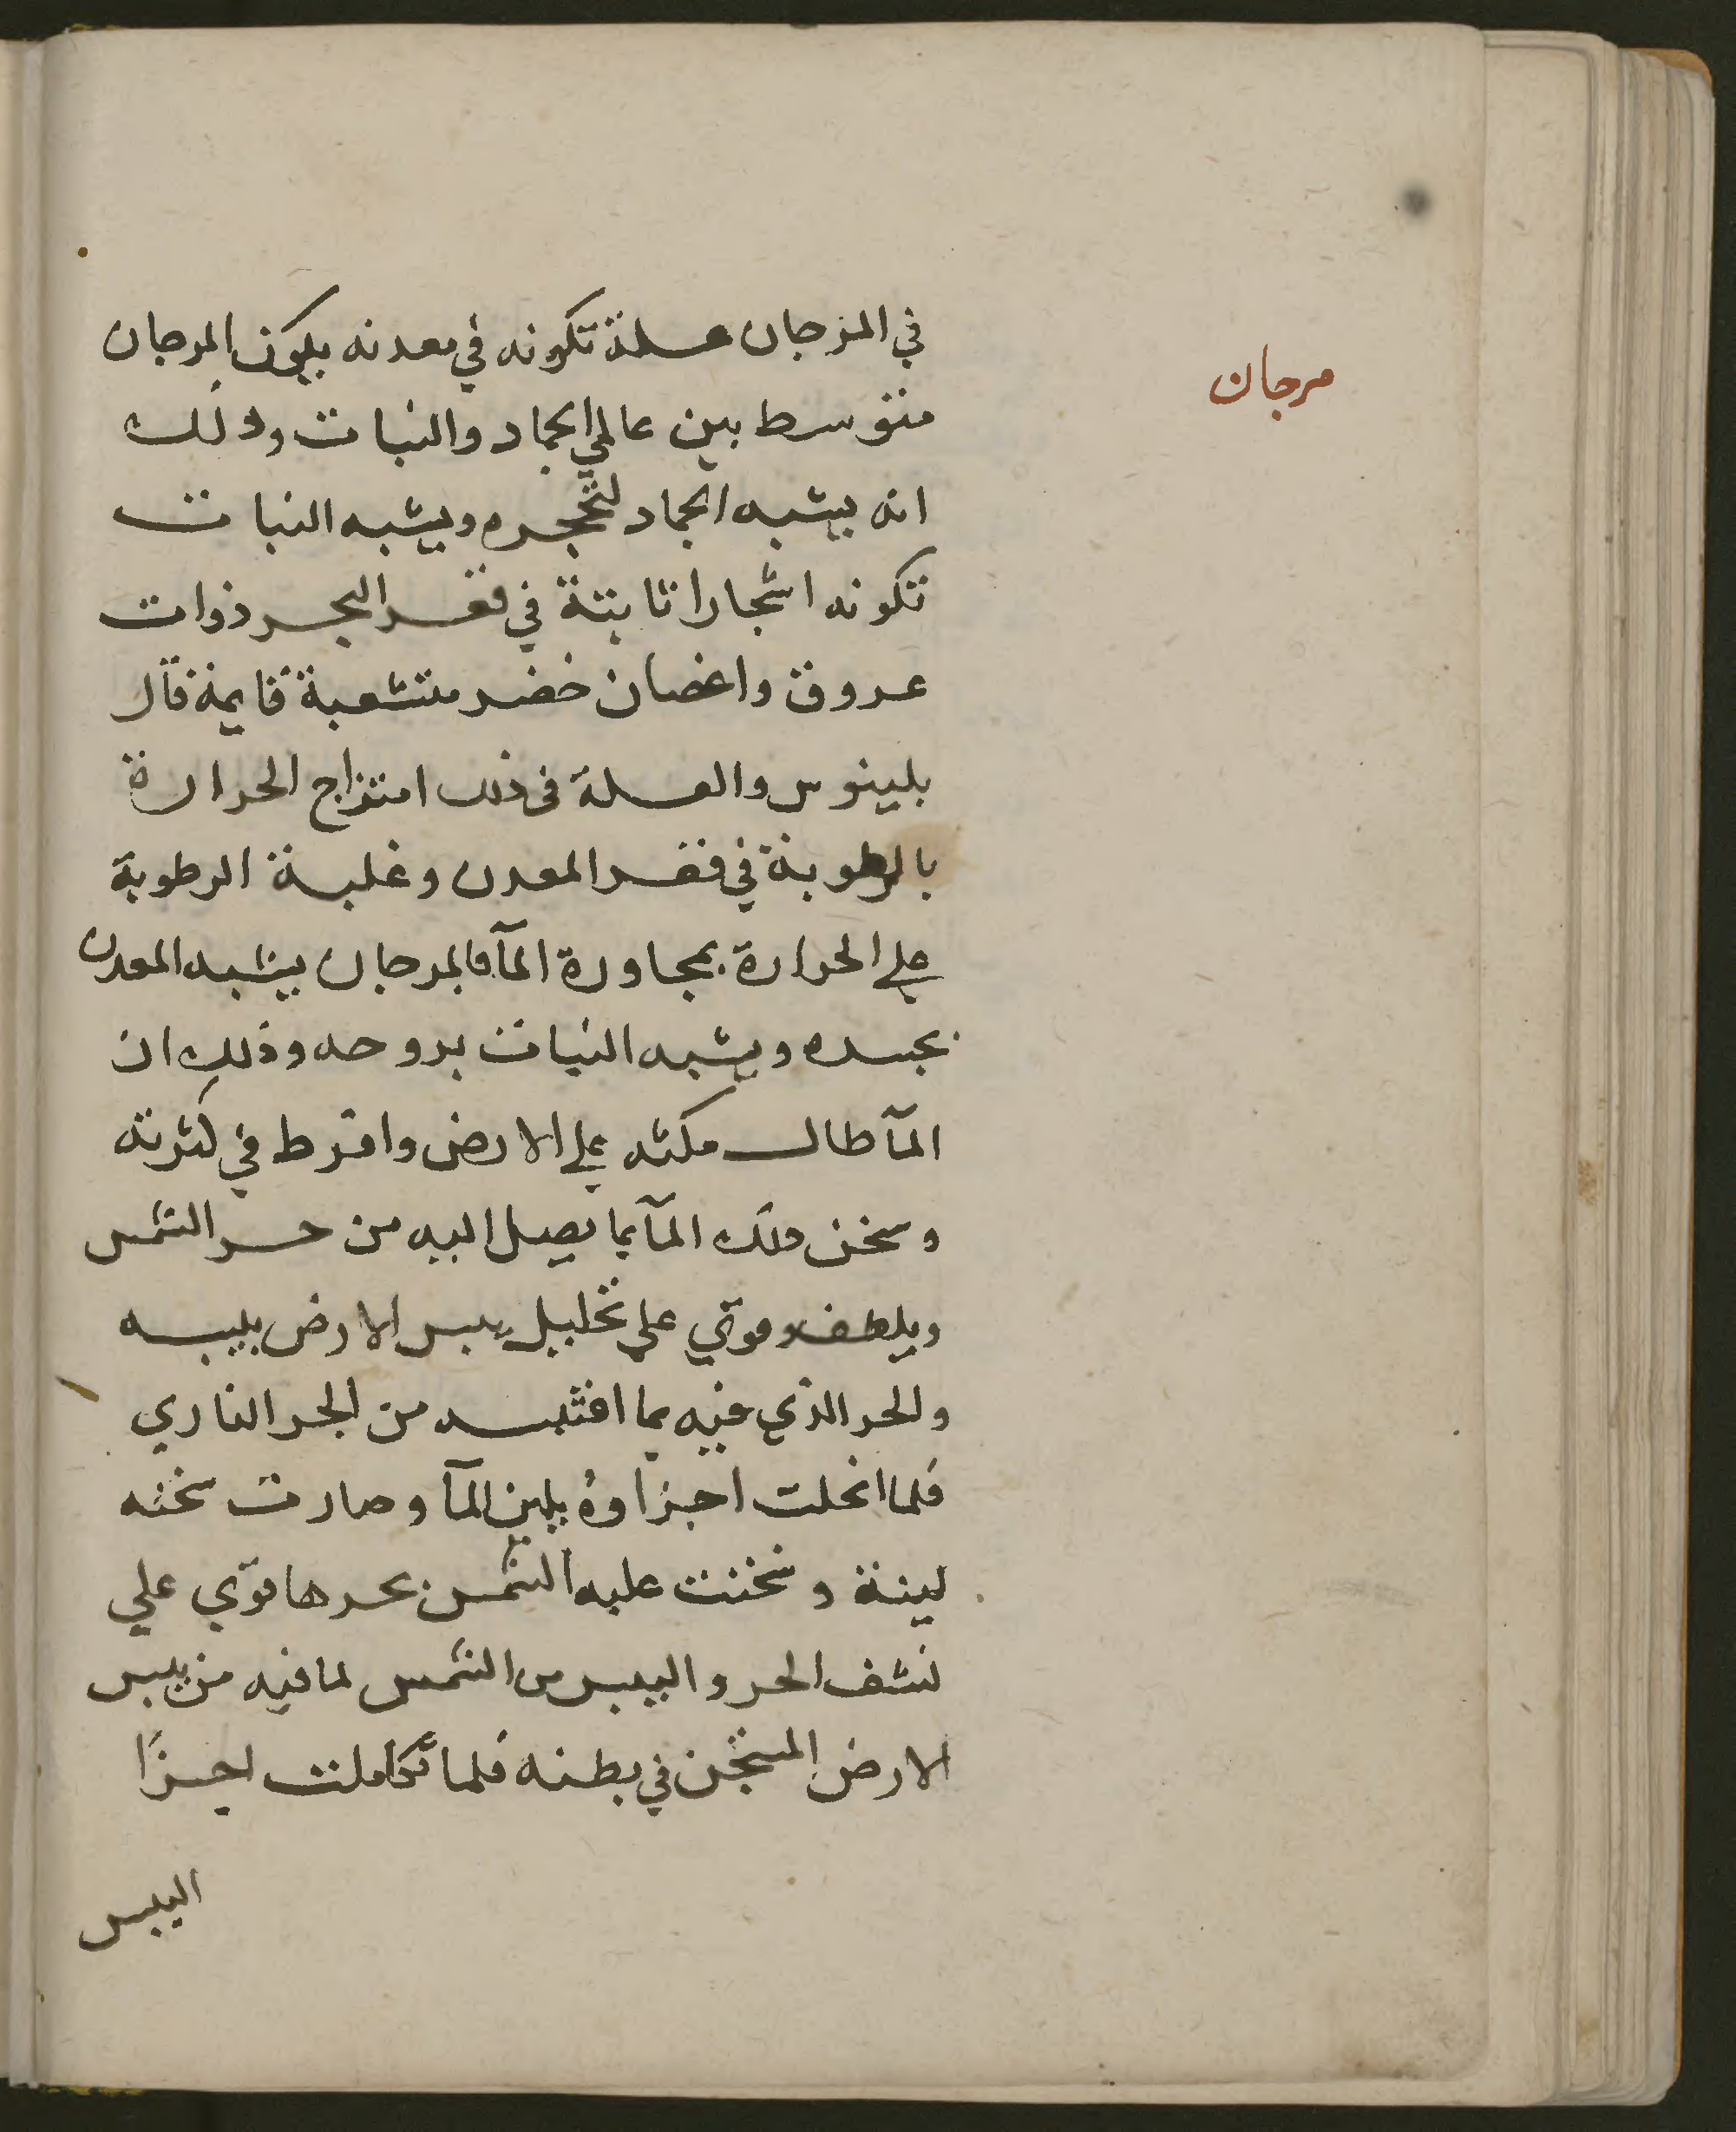 مرجان
في المرجان علة تكونه في معدنه يكون المرجان
متوسط بين عالمي الجماد والنبات وذلك
انه يشبه الجماد لتحجره ويشبه النبات
تكونه اشجارا نابتة في قعر البحر ذوات
عروق واغصان خضر متشعبة قايمة قال
بلينوس والعلة في ذلك امتزاج الحرارة
بالرطوبة في قعر المعدن وغلبة الرطوبة
علي الحرارة بمجاورة المآ فالمرجان يشبه المعدن
بجسده ويشبه النبات بروحه وذلك ان
المآ طال مكثه علي الارض وافرط في كثرته
وسخن ذلك المآ بما يصل اليه من حر الشمس
ويلطف وقوي علي تحليل يبس الارض بليبه
والحر الذي فيه بما اقتبسه من الحر الناري
فلما انحلت اجزاوه بلين المآ وصارت سخنه
لينة وسخنت عليه الشمس بحرها قوي علي
نشف الحر واليبس من الشمس لما فيه من يبس
الارض المستجن في بطنه فلما تكاملت اجزا
اليبس